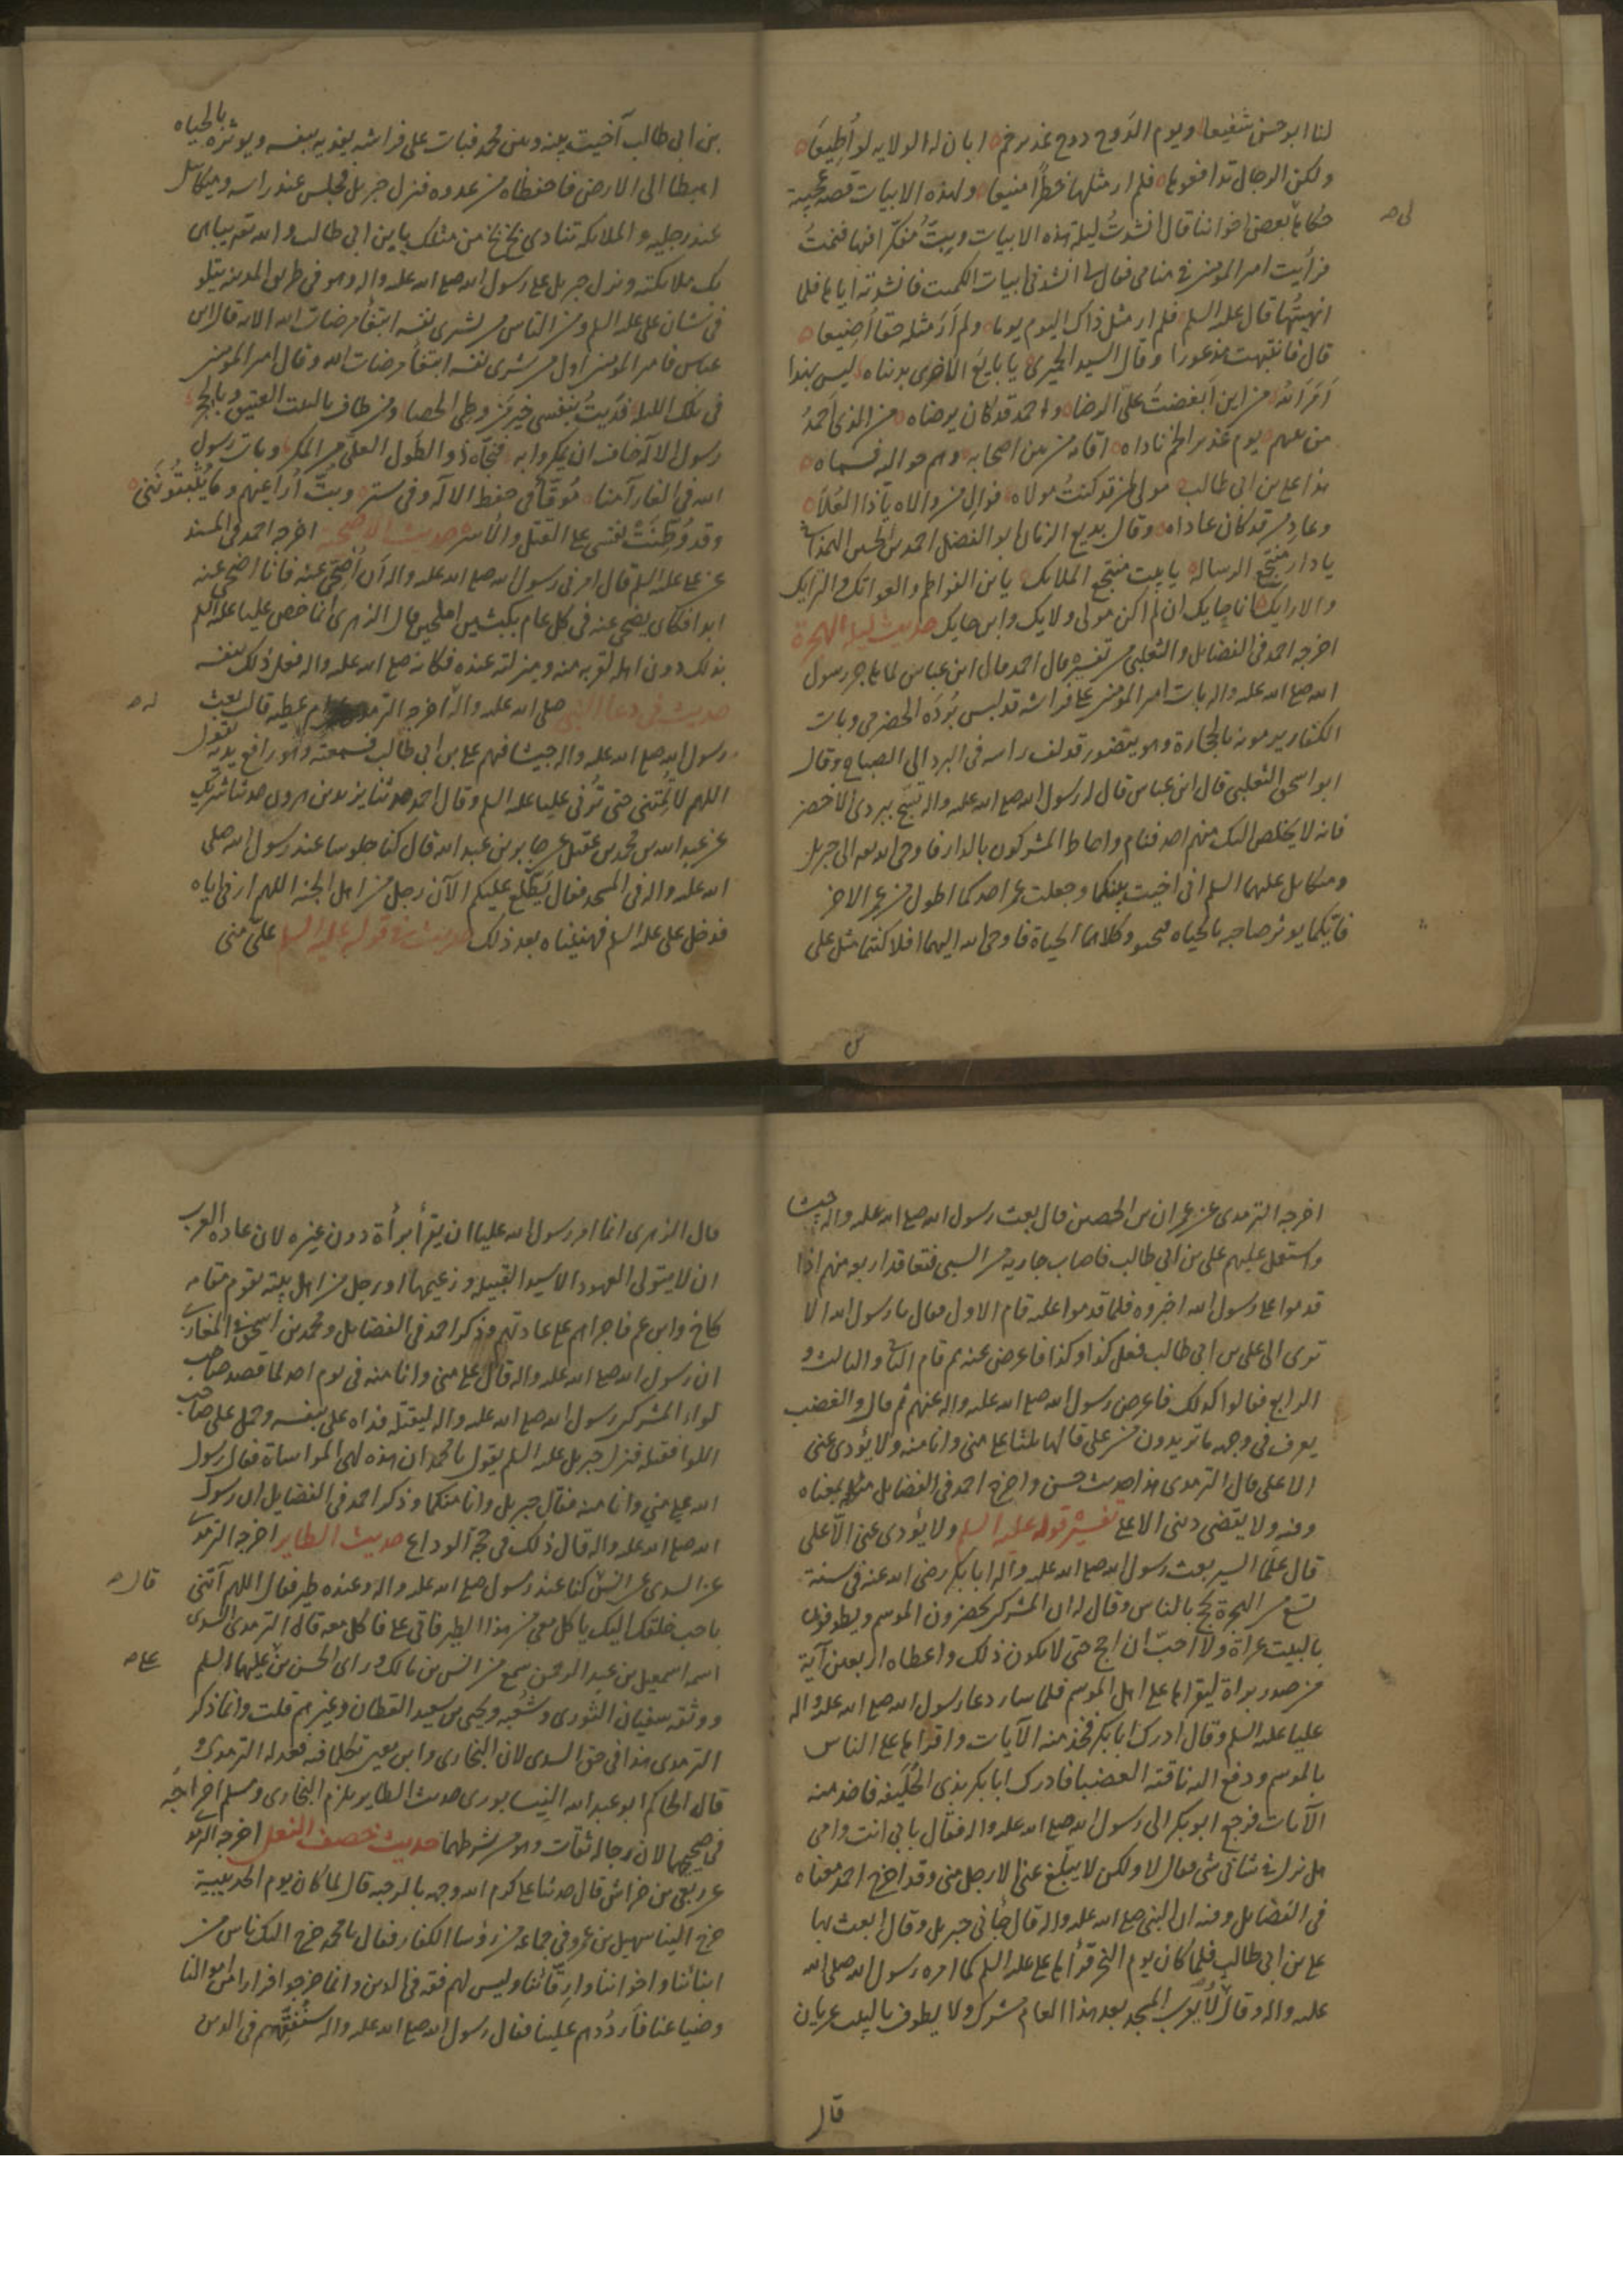 لنا ابو حسن شفيعا ويوم الدوح دوح غدير خم ابان له الولايه لو اطيعا
ولكن الرجال تدافعوها فلم ار مثلها خطرا منيعا ولهذه الابيات قصه عجيبة
حكاها بعض اخواننا قال انشدت ليلة هذه الابيات وبت متفكرا فيها فنمت
فرأيت امير المومنين في منامي فقال لي انشدني ابيات الكميت فانشدته اياها فلما
انهيتها قال عليه السلم فلم ار مثل ذاك اليوم يوما ولم ار مثله حقا اضيعا
قال فانتبهت مذعورا وقال السيد الحميرى يا بايع الاخرى بدنياه ليس بهذا
امر الله من اين ابغضت على الرضا واحمد قد كان يرضاه من الذي احمد
من بينهم يوم غدير الخم ناداه اقامه من بين اصحابه وهم حواليه فسماه
هذا علي بن ابي طالب مولى لمن قد كنت مولاه فوال من والاه ياذا العلا
وعاد من قد كان عاداه وقال بديع الزمان ابو الفضل احمد بن الحسين الهمذاني
يا دار منتجع الرساله يا بيت منتجع الملائك يا بن الفواطم والعواتك والترايك
والارايك انا حايك ان لم اكن مولى ولايك وابن حايك حديث ليلة الهجرة
اخرجه احمد في الفضايل والثعلبي في تفسيره قال احمد قال ابن عباس لما هاجر رسول
الله صلى الله عليه واله بات امير المومنين على فراشه قد لبس برده الحضرمي وبات
الكفار يرمونه بالحجارة وهو يتضور قد لف راسه في البرد الى الصباح وقال
ابو اسحق الثعلبي قال ابن عباس قال له رسول الله صلى الله عليه واله تسج ببردي الاخضر
فانه لا يخلص اليك منهم احد فنام واحاط المشركون بالدار فاوحى الله تعه الى جبريل
وميكايل عليهما السلم اني اخيت بينكما وجعلت عمر احدكما اطول من عمر الاخر
فايكما يوثر صاحبه بالحياه وكلاهما الحياة فاوحى الله اليهما افلا كنتما مثل علي
بن ابي طالب آخيت بينه وبين محمد فبات على فراشه يفديه بنفسه ويوثره بالحياه
اهبطا الى الارض فاحفظاه من عدوه فنزل جبريل فجلس عند راسه وميكايل
عند رجليه والملائكه تنادي بخ بخ من مثلك يا بن ابي طالب والله تعه يباهي
بك ملايكته ونزل جبريل على رسول الله صلى الله عليه واله وهو في طريق المدينه يتلو
في شان علي عليه السلم ومن الناس من يشرى نفسه ابتغا مرضات الله الايه قال ابن
عباس فامير المومنين اول من شرى نفسه ابتغا مرضات الله وقال امير المومنين
في تلك الليله فديت بنفسي خير من وطي الحصا ومن طاف بالبيت العتيق وبالحجر
رسول الاله خاف ان يمكروا به فنجاه ذو الطول العلي من المكر وبات رسول
الله في الغار آمنا موقا في حفظ الاله وفي ستر وبت اراعيهم وما يثبتونني
وقد وطنت نفسي على القتل والاسر حديث الاضحيه اخرجه احمد في المسند
عن علي عليه السلم قال امرني رسول الله صلى الله عليه واله ان اضحي عنه فانا اضحي عنه
ابدا فكان يضحي عنه في كل عام بكبشين املحين قال الزهري انما خص عليا عليه السلم
بذلك دون اهله لقربه منه ومنزلته عنده فكانه صلى الله عليه واله فعل ذلك بنفسه
حديث في دعا النبي صلى الله عليه واله اخرجه الترمذي عن ام عطيه قالت بعث
رسول الله صلى الله عليه واله جيشا فيهم علي بن ابي طالب فسمعته وهو رافع يديه يقول
اللهم لا تمتني حتى تُرني عليا عليه السلم وقال احمد حدثنا يزيد بن هرون حدثنا شريك
عن عبد الله بن محمد بن عقيل عن جابر بن عبد الله قال كنا جلوسا عند رسول الله صلى
الله عليه واله في المسجد فقال يطلع عليكم الآن رجل من اهل الجنه اللهم ارني اياه
فدخل علي عليه السلم فهنيناه بعد ذلك حديث في قوله عليه السلم علي مني
اخرجه الترمذى عن عمران بن الحصين قال بعث رسول الله صلى الله عليه واله جيشا
واستعمل عليهم علي بن ابي طالب فاصاب جارية من السبي فتعاقد اربعه منهم اذا
قدموا على رسول الله اخبروه فلما قدموا عليه قام الاول فقال يا رسول الله الا
ترى الى علي بن ابي طالب فعل كذا وكذا فاعرض عنه ثم قام الثاني والثالث و
الرابع فقالوا كذلك فاعرض رسول الله صلى الله عليه واله عنهم ثم قال والغضب
يعرف في وجهه ما تريدون من علي قالها ثلثا علي مني وانا منه ولا يؤدى عني
الا علي قال الترمذى هذا حديث حسن واخرج احمد في الفضايل مثله بمعناه
وفيه ولا يقضي ديني الا علي تفسير قوله عليه السلم ولا يؤدى عني الا علي
قال علما السير بعث رسول الله صلى الله عليه واله ابا بكر رضى الله عنه في سنة
تسع من الهجرة يحج بالناس وقال له ان المشركين يحضرون الموسم ويطوفون
بالبيت عراة ولا احب ان احج حتى لا يكون ذلك واعطاه اربعين آية
من صدر براة ليقراها على اهل الموسم فلما سار دعا رسول الله صلى الله عليه واله
عليا عليه السلم وقال ادرك ابا بكر فخذ منه الآيات واقراها على الناس
بالموسم ودفع اليه ناقته العضبا فادرك ابا بكر بذى الحليفه فاخذ منه
الآيات فرجع ابو بكر الى رسول الله صلى الله عليه واله فقال بابي انت وامي
هل نزل في شاني شي فقال لا ولكن لا يبلغ عني الا رجل مني وقد اخرج احمد معناه
في الفضايل وفيه ان النبي صلى الله عليه واله قال جاني جبريل وقال ابعث بها
علي بن ابي طالب فلما كان يوم النحر قرأها علي عليه السلم كما امره رسول الله صلى الله
عليه واله وقال لا يقرب المسجد بعد هذا العام مشرك ولا يطوف بالبيت عريان
قال
قال الزهرى انما امر رسول الله عليا ان يقرأ برأة دون غيره لان عاده العرب
ان لا يتولى العهود الا سيد القبيله وزعيمها او رجل من اهل بيته يقوم مقامه
كاخ وابن عم فاجراهم على عادتهم وذكر احمد في الفضايل ومحمد بن اسحق في المغازي
ان رسول الله صلى الله عليه واله قال علي مني وانا منه في يوم احد لما قصد صاحب
لواء المشركين رسول الله صلى الله عليه واله ليقتله فداه علي بنفسه وحمل على صاحب
اللوا فقتله فنزل جبريل عليه السلم يقول يا محمد ان هذه لهي المواساة فقال رسول
الله علي مني وانا منه فقال جبريل وانا منكما وذكر احمد في الفضايل ان رسول
الله صلى الله عليه واله قال ذلك في حجة الوداع حديث الطاير اخرجه الترمذي
عن السدى عن انس كنا عند رسول صلى الله عليه واله وعنده طير فقال اللهم آتني قال
باحب خلقك اليك ياكل معي من هذا الطير فاتي علي فاكل معه قال الترمذى السدى
اسمه اسمعيل بن عبد الرحمن سمع من انس بن مالك وراى الحسن بن علي عليهما السلم
ووثقه سفيان الثورى وشعبه ويحيى بن سعيد القطان وغيرهم قلت وانما ذكر
الترمذى هذا في حق السدى لان البخارى وابن معين تكلما فيه فعدله الترمذى و
قال الحاكم ابو عبد الله النيسابورى حديث الطاير يلزم البخارى ومسلم اخراجه
في صحيحهما لان رجاله ثقات وهو من شرطهما حديث خصف النعل اخرجه الترمذي
عن ربعي بن خراش قال حدثنا علي كرم الله وجهه بالرحبه قال لما كان يوم الحديبية
خرج الينا سهيل بن عمرو في جماعه من رؤسا الكفار فقال يا محمد خرج اليك ناس من
ابنائنا واخواننا وارقائنا وليس لهم فقه في الدين وانما خرجوا فرارا من اموالنا
وضياعنا فارددهم علينا فقال رسول الله صلى الله عليه واله سنفقههم في الدين